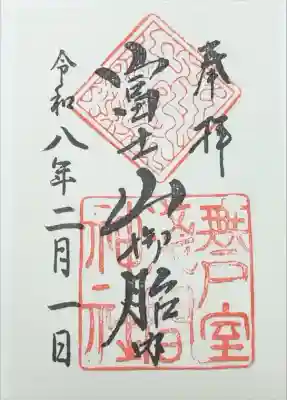 奉拝
富士山御胎内
令和八年二月一日
無戸室
浅間
神社